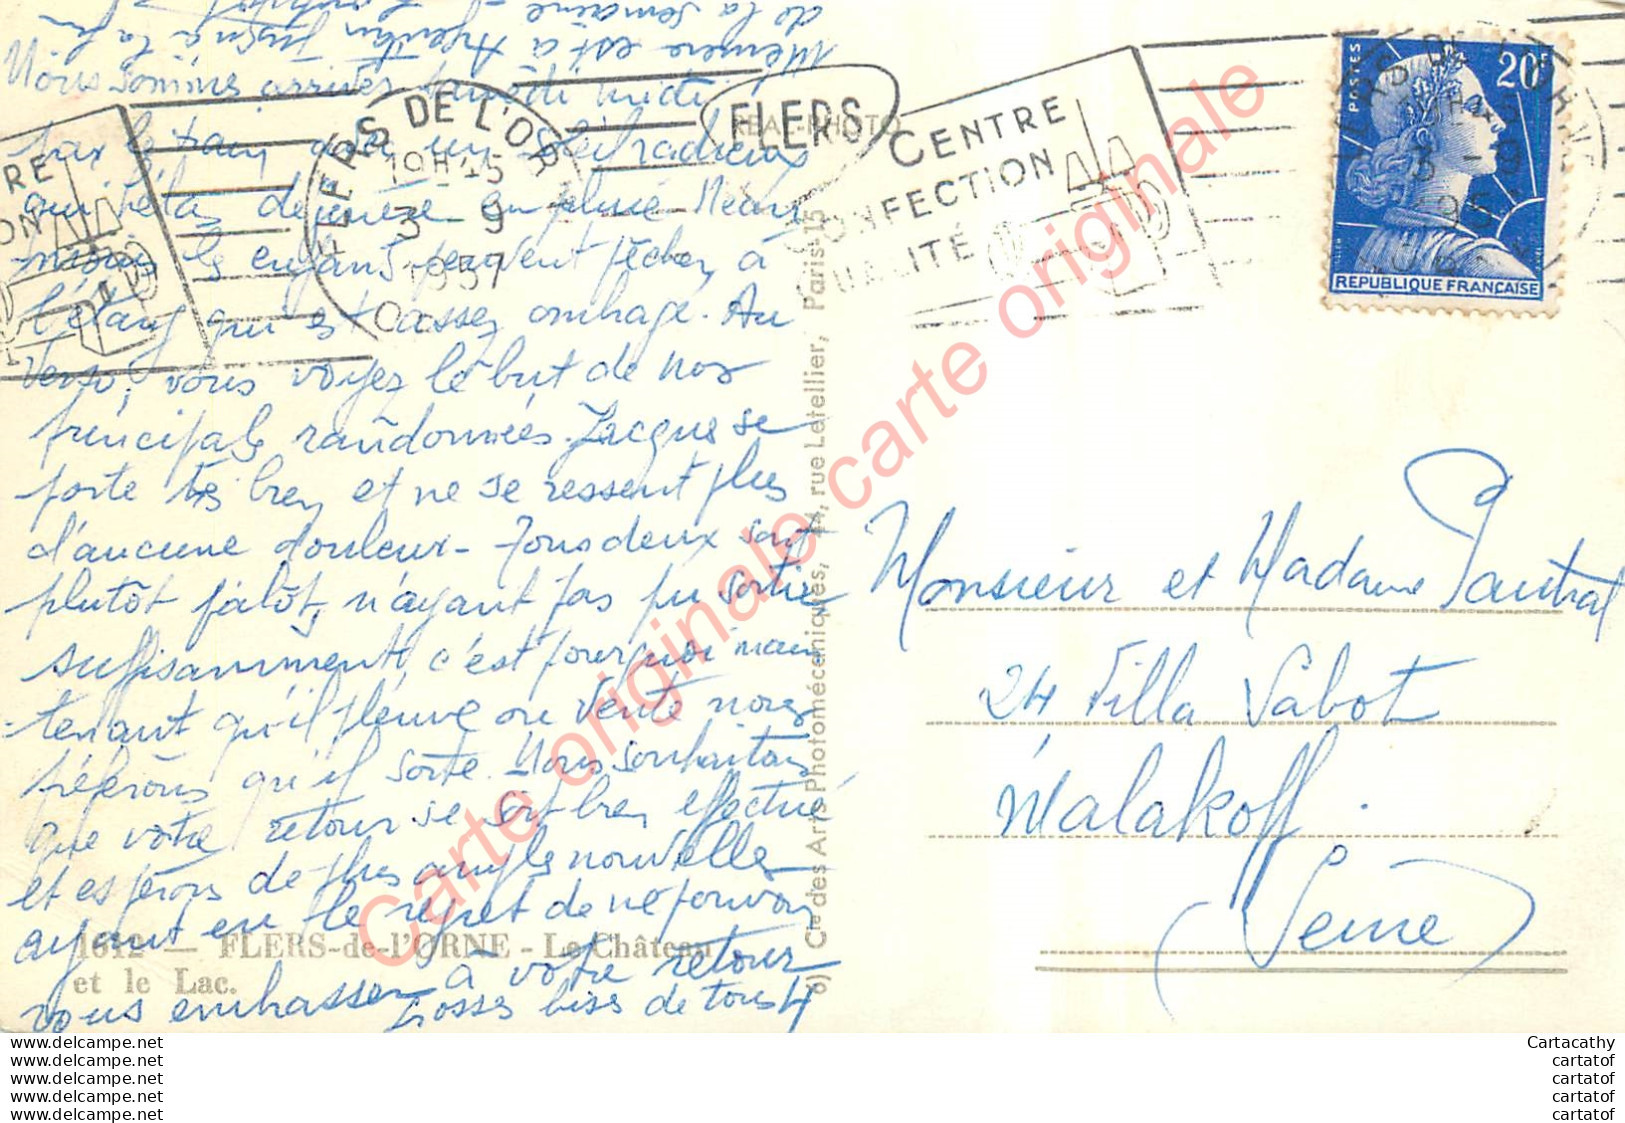 de la semaine
est à Argentan jusqu'à la fin
Nous sommes arrivés samedi midi
par le train avec un soleil radieux
qui s'était dégénéré en pluie. Néan
moins les enfants peuvent pêcher à
l'étang qui est assez ombragé. Au
verso, vous voyez le but de nos
principales randonnées. Jacques se
porte très bien et ne se ressent plus
d'aucune douleur - Tous deux sont
plutôt pâlots, n'ayant pas pu sortir
suffisamment, c'est pourquoi main
-tenant qu'il pleuve ou vente nous
préférons qu'il sorte. Nous souhaitons
que votre retour se soit bien effectué
et espérons de plus amples nouvelles
ayant eu le regret de ne pouvoir
vous embrasser à votre retour
Grosses bises de tous 4
1612 — FLERS-de-l'ORNE - Le Château
et le Lac.
FLERS DE L'ORNE
19H45
3 - 9
1957
REAL-PHOTO
FLERS
CENTRE
CONFECTION
QUALITÉ
RE
ON
6) Cie des Arts Photomécaniques, 44, rue Letellier, Paris-15
POSTES
20F
REPUBLIQUE FRANÇAISE
Monsieur et Madame Pautrat
24 Villa Sabot
Malakoff
(Seine)
Carte originale carte originale carte originale
www.delcampe.net
www.delcampe.net
www.delcampe.net
www.delcampe.net
www.delcampe.net
Cartacathy
cartatof
cartatof
cartatof
cartatof